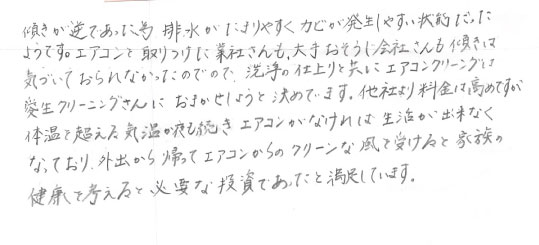 傾きが逆であった為、排水がたまりやすくカビが発生しやすい状態だった
ようです。エアコンを取りつけた業社さんも、大手おそうじ会社さんも傾きは
気づいておられなかったのでので、洗浄の仕上りと共にエアコンクリーニングは
愛生クリーニングさんにおまかせしようと決めてます。他社より料金は高めですが
体温を超える気温が夜も続きエアコンがなければ生活が出来なく
なっており、外出から帰ってエアコンからのクリーンな風を受けると家族の
健康を考えると必要な投資であったと満足しています。